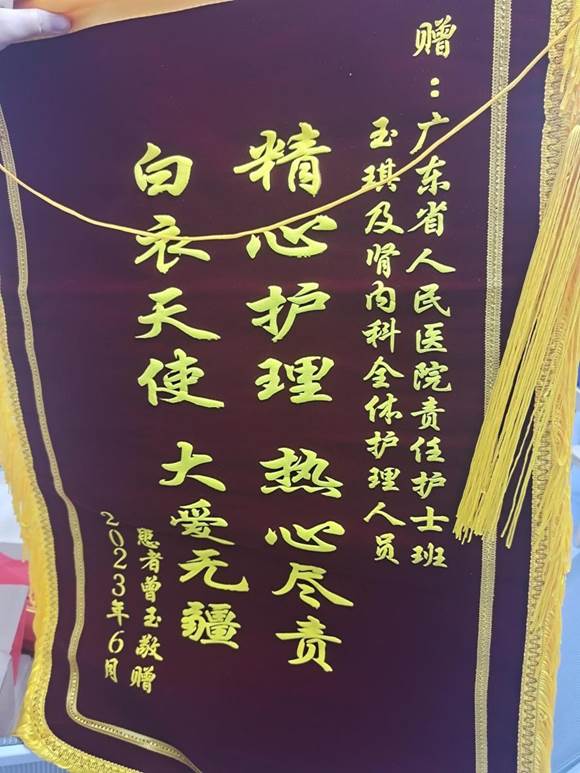 赠：广东省人民医院责任护士班
玉琪及肾内科全体护理人员
精心护理 热心尽责
白衣天使 大爱无疆
患者曾玉敬赠
2023年6月